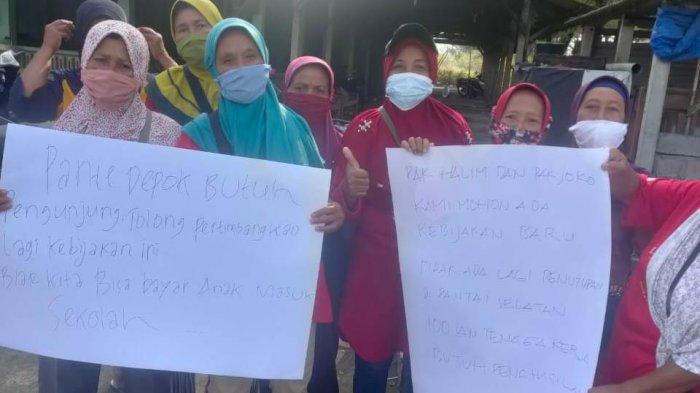 Pante Depok Butuh
Pengunjung. Tolong pertimbangkan
lagi kebijakan ini
Biar kita Bisa bayar Anak masuk
Sekolah ...
PAK HALIM DAN PAK JOKO
KAMI MOHON ADA
KEBIJAKAN BARU
TIDAK ADA LAGI PENUTUPAN
di PANTAI SELATAN
100 AN TENAGA KERJA
BUTUH PENGHASIL